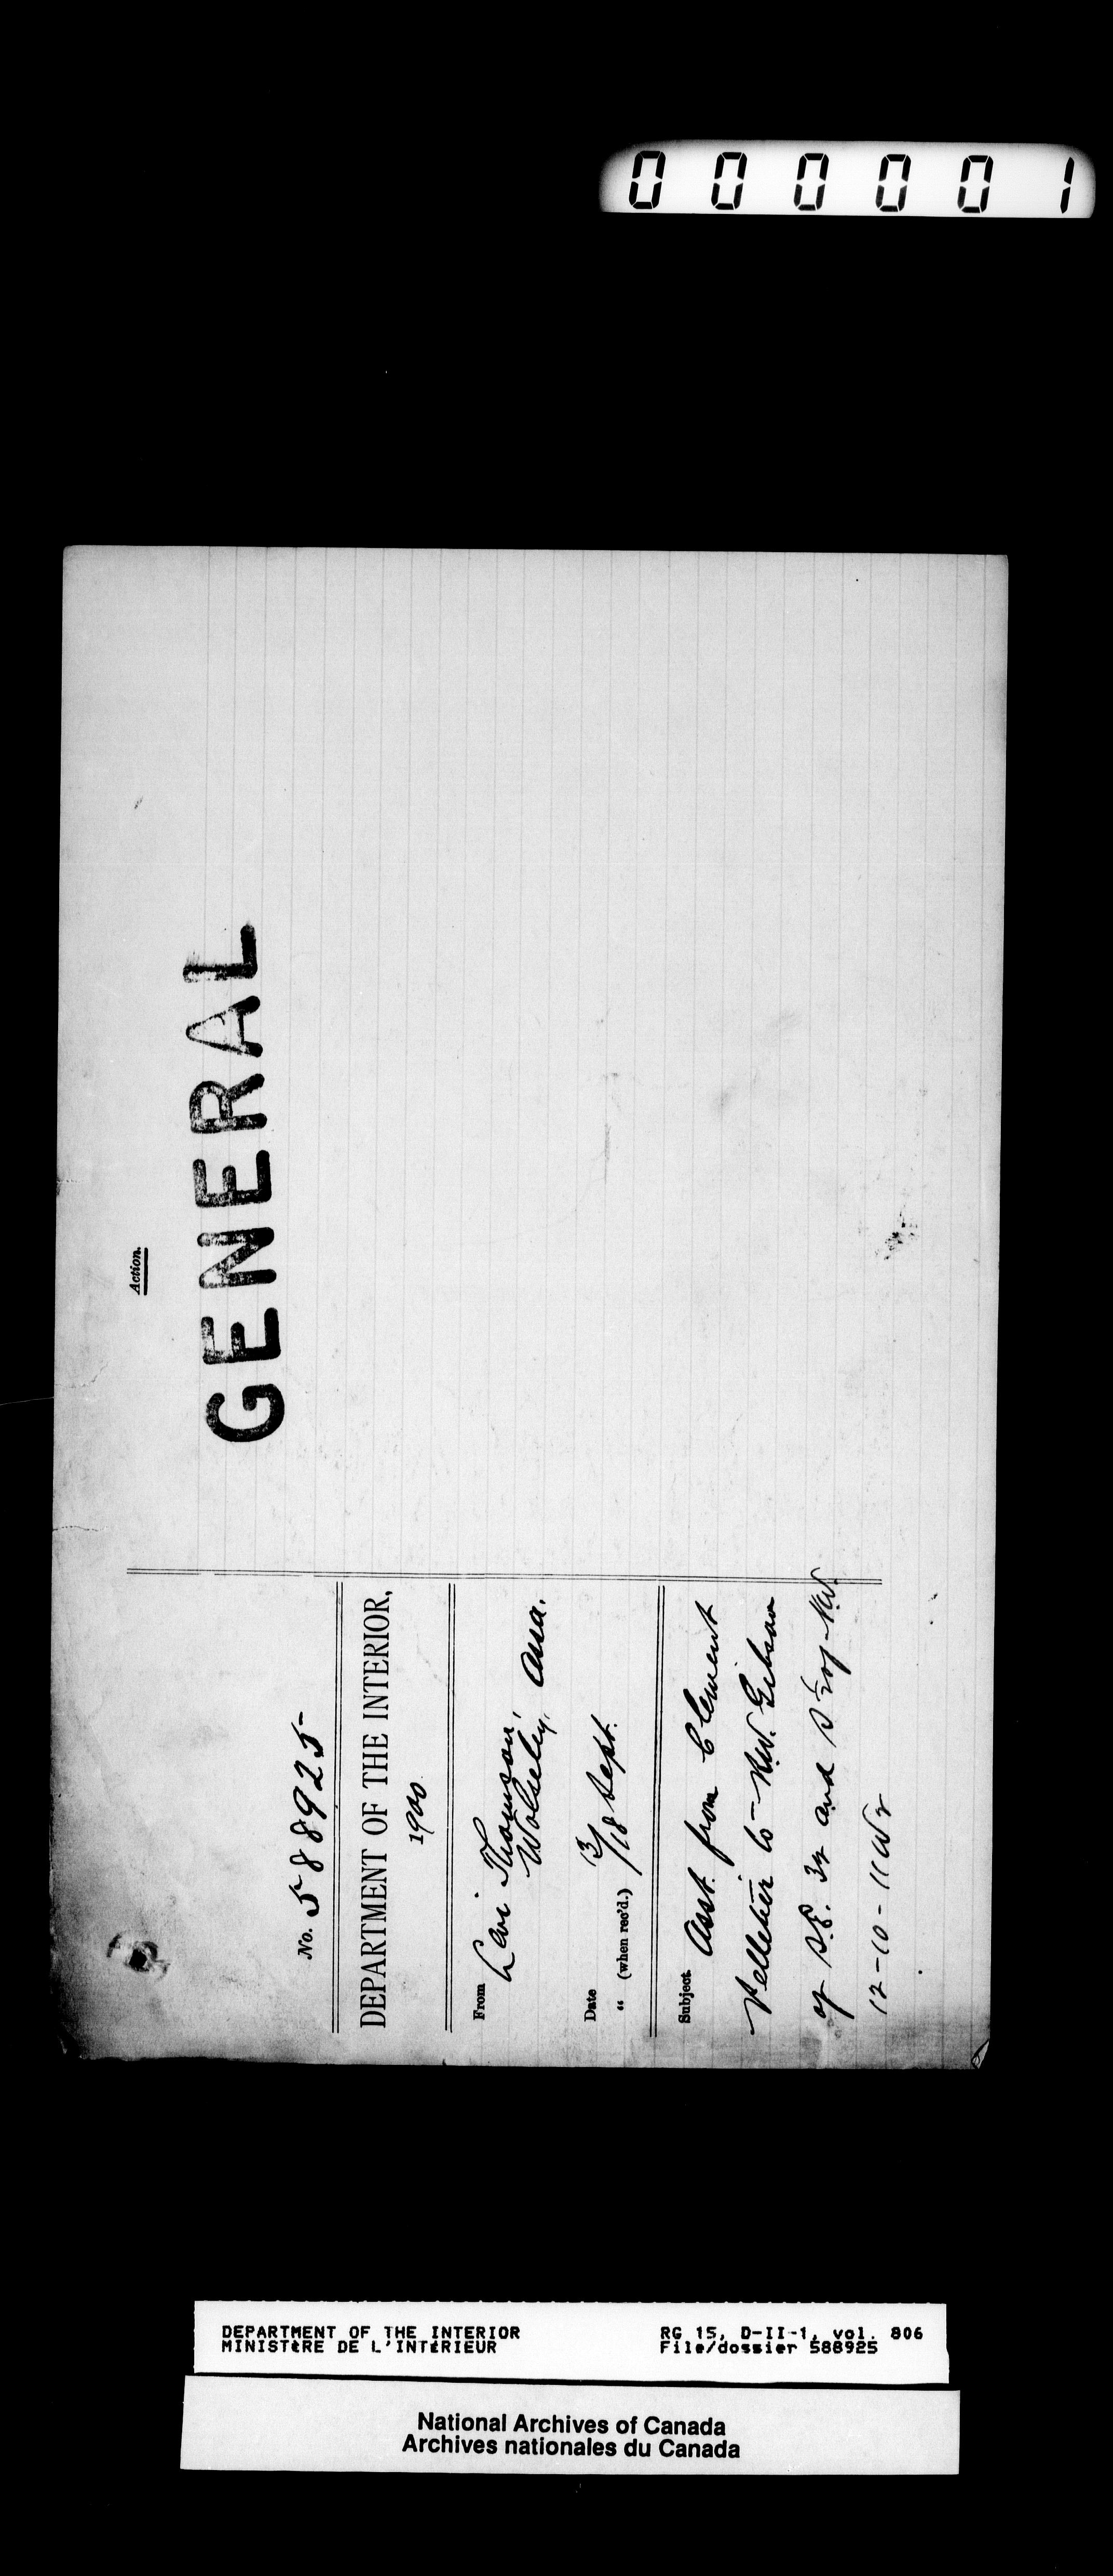 000001
No. 588925
DEPARTMENT OF THE INTERIOR,
1900
From Levi Thomson,
Wolseley, Assa.
Date 13
" (when rec'd.) /18 Sept.
Subject. Asst. from Clement
Pelletier to N.W. Gibson
of S.E. 34 and S½ of N.W.
12-10-11 W2
Action.
GENERAL
DEPARTMENT OF THE INTERIOR
MINISTÈRE DE L'INTÉRIEUR
RG 15, D-II-1, vol. 806
File/dossier 588925
National Archives of Canada
Archives nationales du Canada